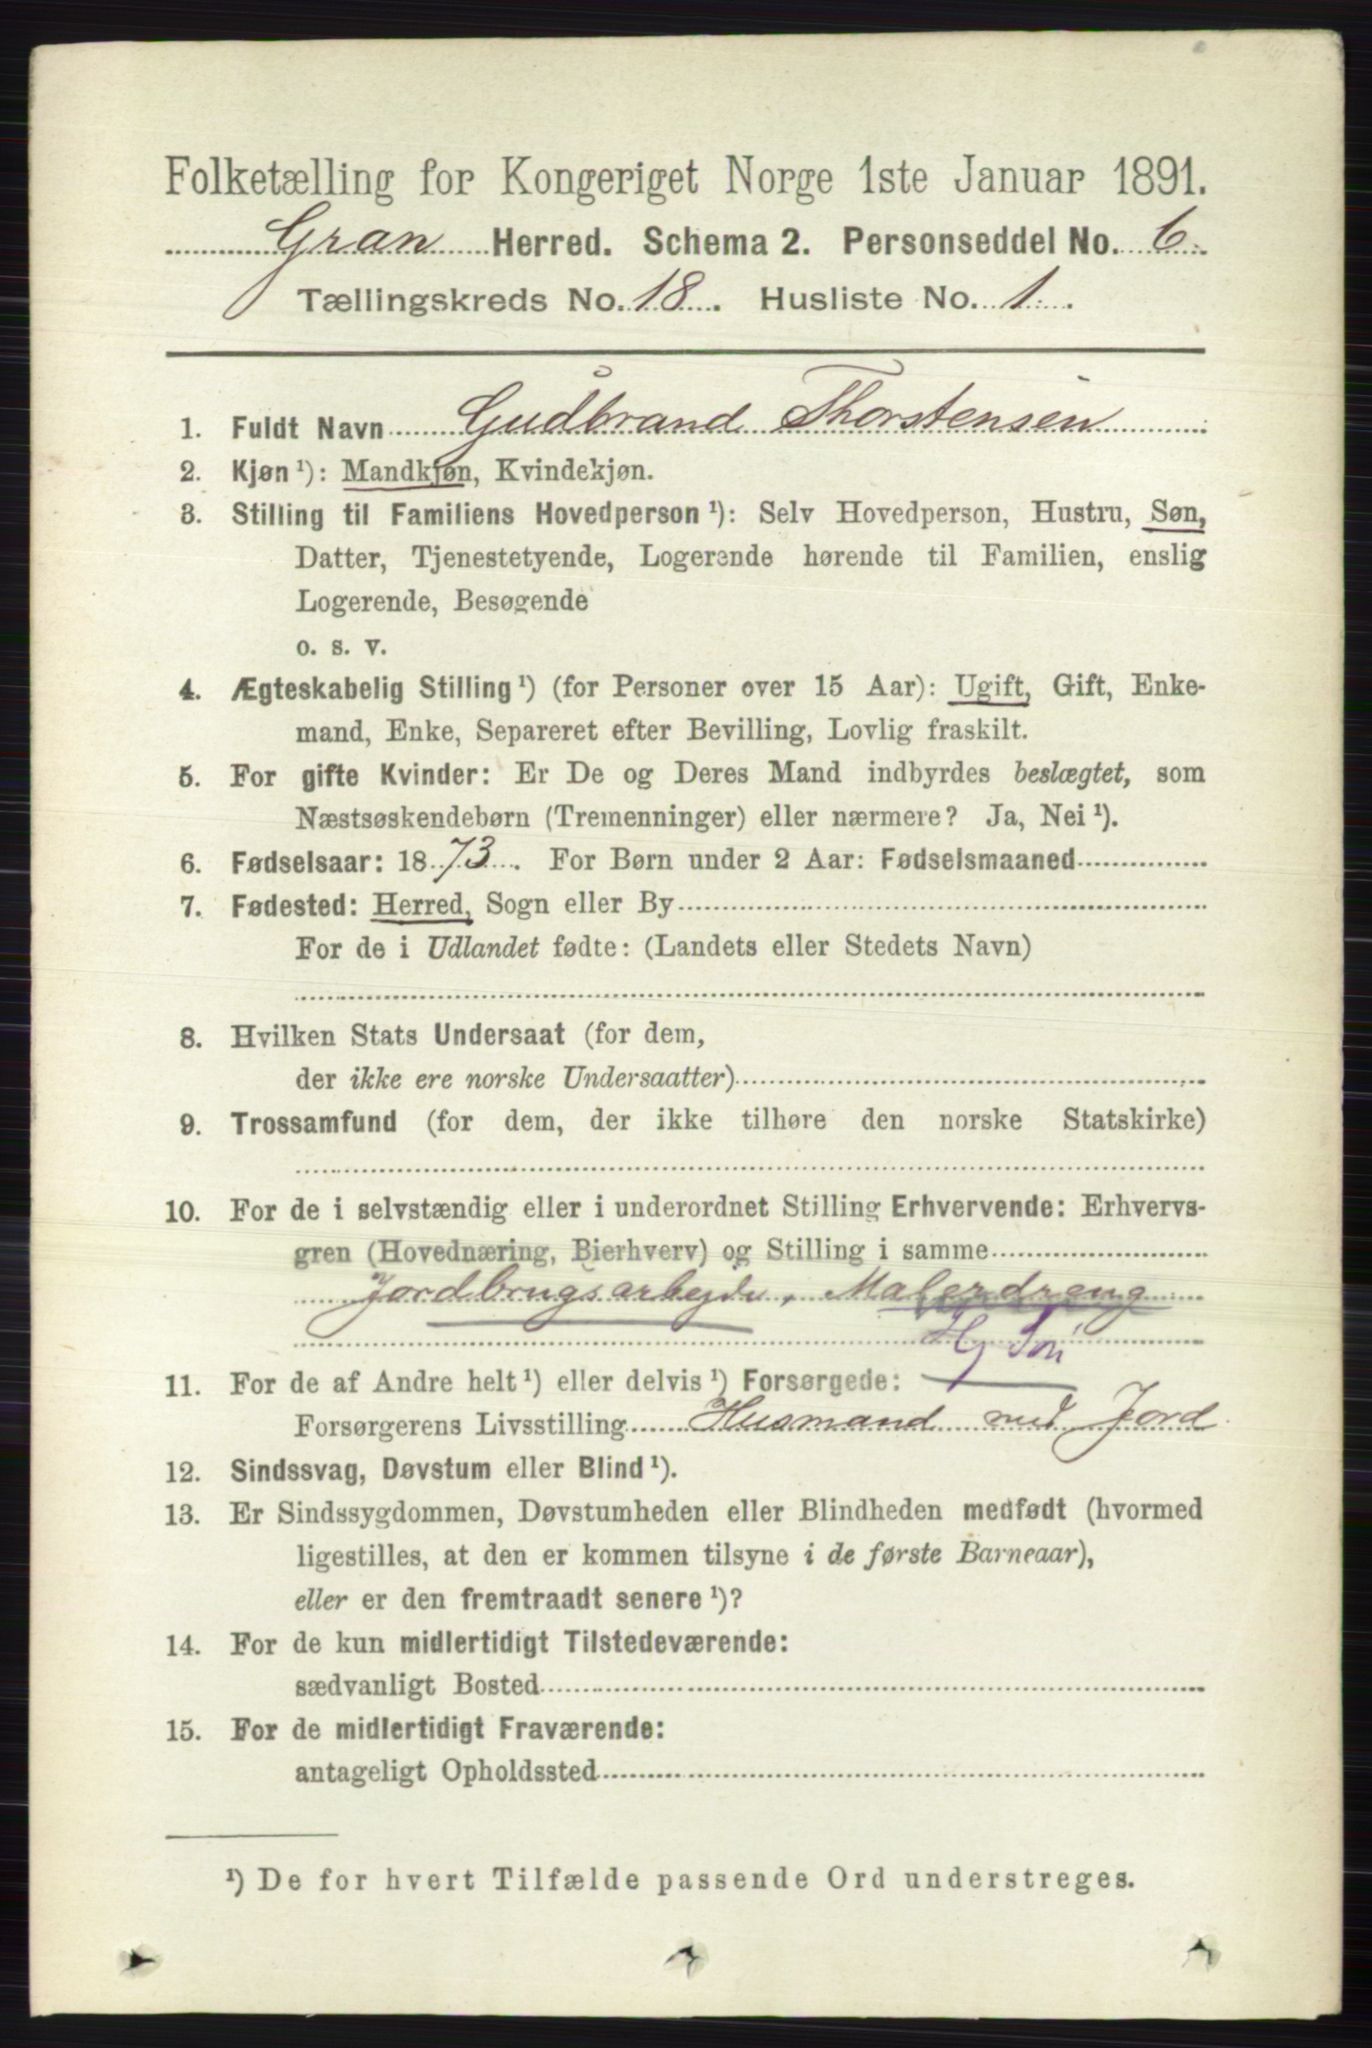 Folketælling for Kongeriget Norge 1ste Januar 1891.
Gran Herred. Schema 2. Personseddel No. 6.
Tællingskreds No. 18. Husliste No. 1.
1. Fuldt Navn Gudbrand Thorstensen
2. Kjøn ¹): Mandkjøn, Kvindekjøn.
3. Stilling til Familiens Hovedperson ¹): Selv Hovedperson, Hustru, Søn,
Datter, Tjenestetyende, Logerende hørende til Familien, enslig
Logerende, Besøgende
o. s. v.
4. Ægteskabelig Stilling ¹) (for Personer over 15 Aar): Ugift, Gift, Enke-
mand, Enke, Separeret efter Bevilling, Lovlig fraskilt.
5. For gifte Kvinder: Er De og Deres Mand indbyrdes beslægtet, som
Næstsøskendebørn (Tremenninger) eller nærmere? Ja, Nei ¹).
6. Fødselsaar: 1873. For Børn under 2 Aar: Fødselsmaaned
7. Fødested: Herred, Sogn eller By
For de i Udlandet fødte: (Landets eller Stedets Navn)
8. Hvilken Stats Undersaat (for dem,
der ikke ere norske Undersaatter)
9. Trossamfund (for dem, der ikke tilhøre den norske Statskirke)
10. For de i selvstændig eller i underordnet Stilling Erhvervende: Erhvervs-
gren (Hovednæring, Bierhverv) og Stilling i samme
Jordbrugsarbejde, Malerdreng
Hj Søn
11. For de af Andre helt ¹) eller delvis ¹) Forsørgede:
Forsørgerens Livsstilling Husmand med Jord
12. Sindssvag, Døvstum eller Blind ¹).
13. Er Sindssygdommen, Døvstumheden eller Blindheden medfødt (hvormed
ligestilles, at den er kommen tilsyne i de første Barneaar),
eller er den fremtraadt senere ¹)?
14. For de kun midlertidigt Tilstedeværende:
sædvanligt Bosted
15. For de midlertidigt Fraværende:
antageligt Opholdssted
¹) De for hvert Tilfælde passende Ord understreges.